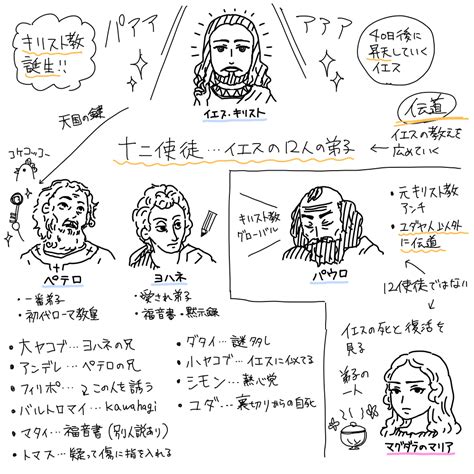 キリスト教
誕生!!
パアア
アアア
40日後に
昇天していく
イエス
イエス・キリスト
天国の鍵
伝道
イエスの教えを
広めていく
コケコッコー
十二使徒…イエスの12人の弟子
キリスト教
グローバル
・元キリスト教
アンチ
・ユダヤ人以外
に伝道
ペテロ
・一番弟子
・初代ローマ教皇
ヨハネ
・愛され弟子
・福音書・黙示録
パウロ
12使徒ではない
イエスの死と復活を
見る
弟子の
一人
マグダラのマリア
・大ヤコブ…ヨハネの兄
・アンデレ…ペテロの兄
・フィリポ…この人を誘う
・バルトロマイ…kawahagi
・マタイ…福音書(別人説あり)
・トマス…疑って傷に指を入れる
・ダタイ…謎多し
・小ヤコブ…イエスに似てる
・シモン…熱心党
・ユダ…裏切りからの自死